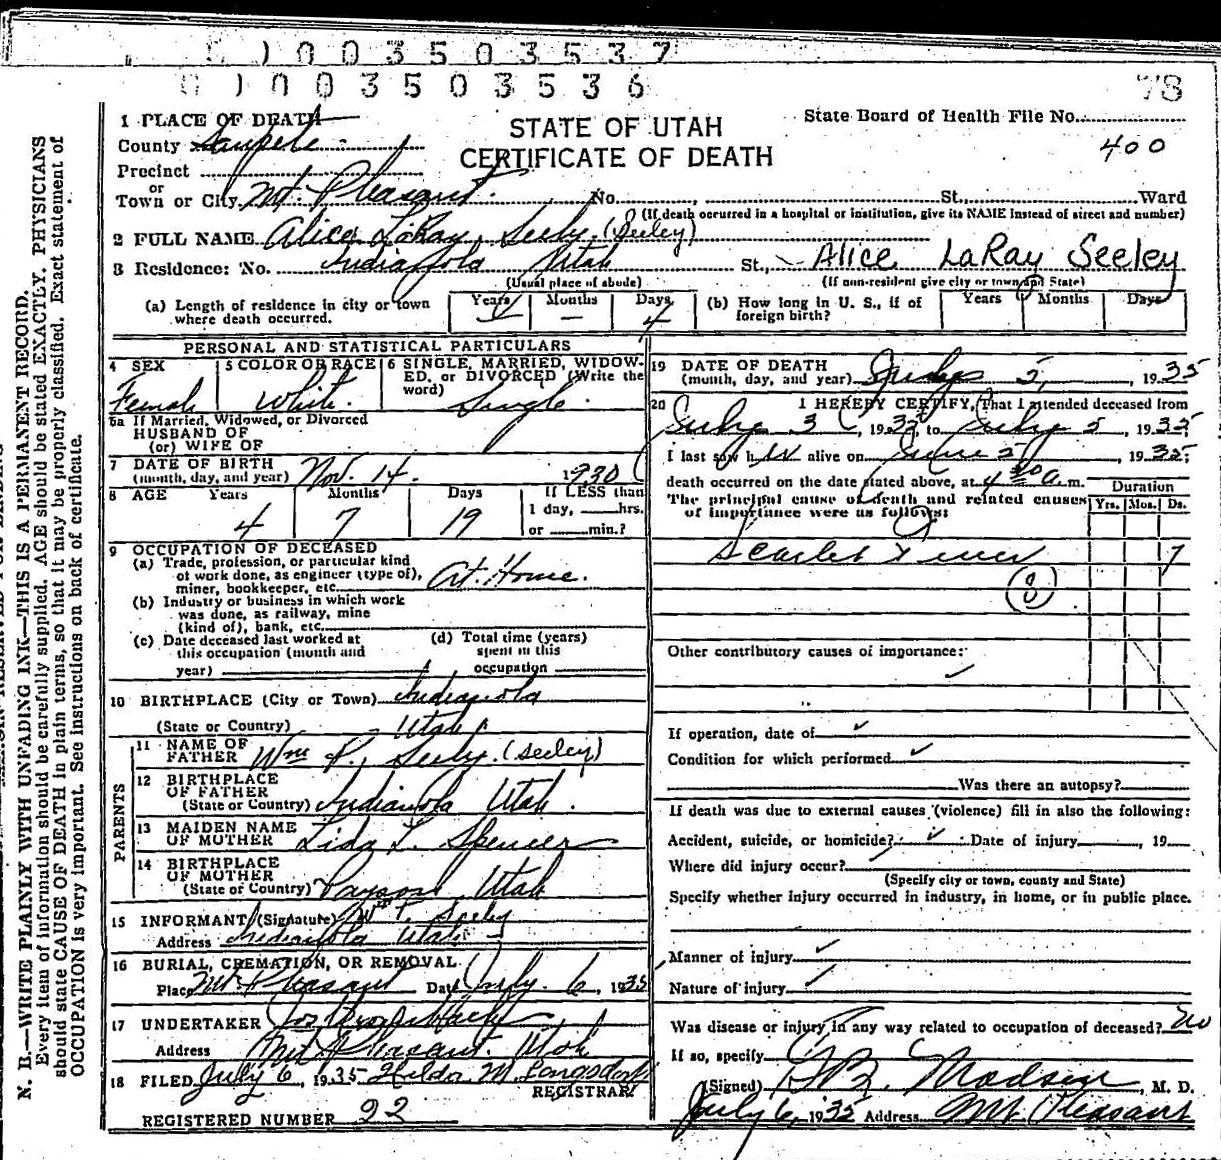 0 0 3 5 0 3 5 3 7
0 0 3 5 0 3 5 3 6
78
1 PLACE OF DEATH
County Sanpete
Precinct
or
Town or City Mt. Pleasant. No. St., Ward
STATE OF UTAH
CERTIFICATE OF DEATH
State Board of Health File No.
400
(If death occurred in a hospital or institution, give its NAME instead of street and number)
2 FULL NAME Alice LaRay Seely. (Seeley)
3 Residence: No. Indianola Utah St., Alice LaRay Seeley
(Usual place of abude) (If non-resident give city or town and State)
(a) Length of residence in city or town where death occurred. Years Months Days 4
(b) How long in U. S., if of foreign birth? Years Months Days
PERSONAL AND STATISTICAL PARTICULARS
4 SEX Female
5 COLOR OR RACE White.
6 SINGLE, MARRIED, WIDOWED, or DIVORCED (Write the word) Single.
6a If Married, Widowed, or Divorced
HUSBAND OF
(or) WIFE OF
7 DATE OF BIRTH
(month, day, and year) Nov. 14. 1930
8 AGE Years Months Days If LESS than
4 7 19 1 day, hrs.
or min.?
9 OCCUPATION OF DECEASED
(a) Trade, profession, or particular kind
of work done, as engineer (type of),
miner, bookkeeper, etc. At. Home.
(b) Industry or business in which work
was done, as railway, mine
(kind of), bank, etc.
(c) Date deceased last worked at
this occupation (month and
year)
(d) Total time (years)
spent in this
occupation
10 BIRTHPLACE (City or Town) Indianola
(State or Country) Utah
PARENTS
11 NAME OF
FATHER Wm P. Seely. (Seeley)
12 BIRTHPLACE
OF FATHER
(State or Country) Indianola Utah.
13 MAIDEN NAME
OF MOTHER Lida L. Spencer
14 BIRTHPLACE
OF MOTHER
(State or Country) Payson Utah
15 INFORMANT (Signature) Wm P. Seely
Address Indianola Utah
16 BURIAL, CREMATION, OR REMOVAL
Place Mt. Pleasant Date July 6, 1935
17 UNDERTAKER
Address Mt. Pleasant. Utah
18 FILED July 6, 1935 Hilda M. Longsdorf
REGISTRAR
REGISTERED NUMBER 22
19 DATE OF DEATH
(month, day, and year) July 5, 1935
20 I HEREBY CERTIFY, That I attended deceased from
July 3, 1935, to July 5, 1935
I last saw her alive on June 5, 1935;
death occurred on the date stated above, at 4 30 a. m.
The principal cause of death and related causes
of importance were as follows:
Duration
Yrs. Mos. Ds.
Scarlet Fever 7
8
Other contributory causes of importance:
If operation, date of
Condition for which performed
Was there an autopsy?
If death was due to external causes (violence) fill in also the following:
Accident, suicide, or homicide? Date of injury , 19
Where did injury occur?
(Specify city or town, county and State)
Specify whether injury occurred in industry, in home, or in public place.
Manner of injury
Nature of injury
Was disease or injury in any way related to occupation of deceased? No
If so, specify
(Signed) Madsen, M. D.
July 6, 1935 Address Mt. Pleasant
N. B.—WRITE PLAINLY WITH UNFADING INK—THIS IS A PERMANENT RECORD.
Every item of information should be carefully supplied. AGE should be stated EXACTLY. PHYSICIANS
should state CAUSE OF DEATH in plain terms, so that it may be properly classified. Exact statement of
OCCUPATION is very important. See instructions on back of certificate.